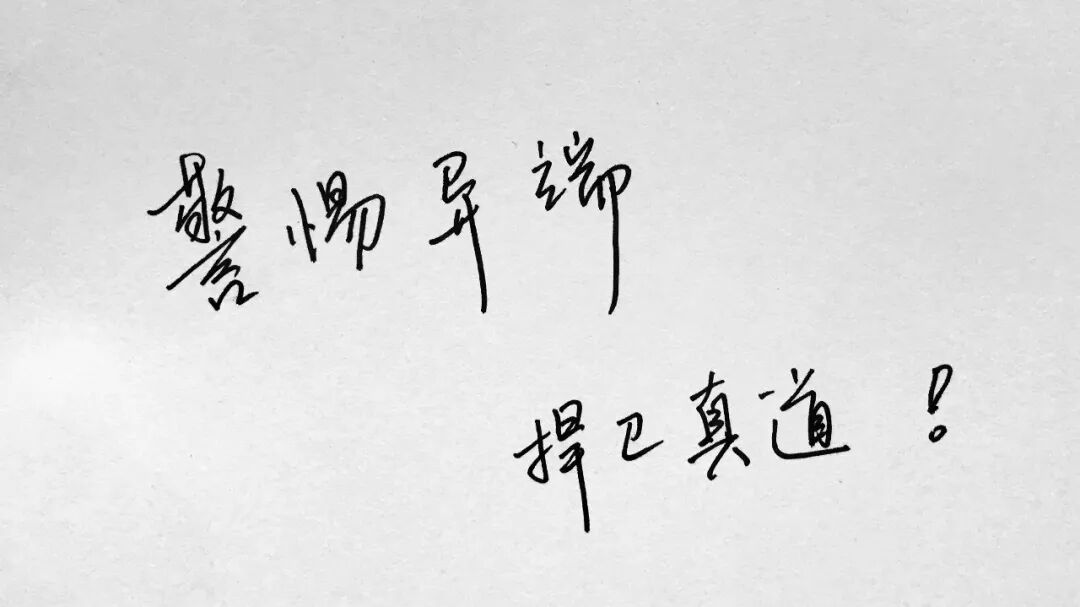 警惕异端
捍卫真道！